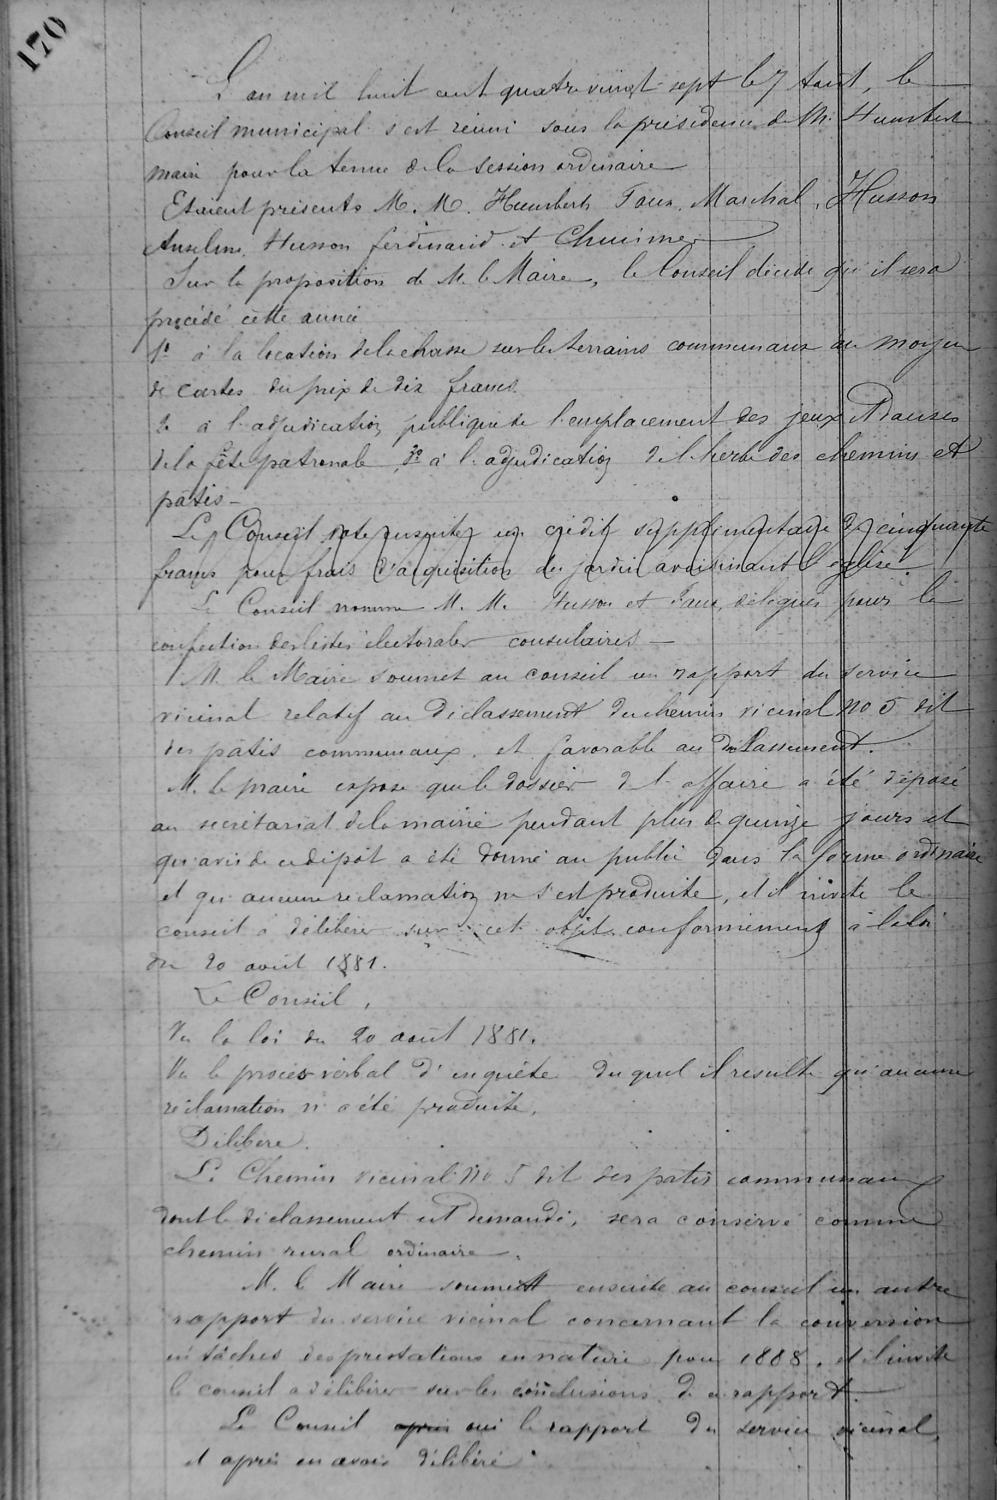 170
L'an mil huit cent quatre vingt sept le 7 Août, le
Conseil municipal s'est réuni sous la présidence de Mr Humbert
maire pour la tenue de la session ordinaire
Etaient présents M. M. Humbert, Marchal, Husson
Anselme, Husson ferdinand et
Sur la proposition de M. le Maire, le Conseil décide qu'il sera
procédé cette année
1º à la location de la chasse sur les terrains communaux au moyen
de cartes du prix de dix francs.
2º à l'adjudication publique de l'emplacement des jeux et Danses
de la fête patronale, 3º à l'adjudication de l'herbe des chemins et
pâtis —
Le Conseil vote ensuite un crédit supplémentaire de cinquante
francs pour frais d'acquisition du jardin avoisinant l'église.
Le Conseil nomme M. M. Husson et délégués pour la
confection des listes électorales consulaires —
M. le Maire soumet au conseil un rapport du service
vicinal relatif au déclassement du chemin vicinal no 5 dit
des pâtis communaux. et favorable au déclassement.
M. le maire expose que le dossier de l'affaire a été déposé
au secrétariat de la mairie pendant plus de quinze jours et
qu'avis de ce dépôt a été donné au public dans la forme ordinaire
et qu'aucune réclamation ne s'est produite, et il invite le
conseil à délibérer sur cet objet conformément à la loi
du 20 août 1881.
Le Conseil,
Vu la loi du 20 août 1881.
Vu le procès-verbal d'enquête duquel il résulte qu'aucune
réclamation n'a été produite.
Délibère.
Le Chemin vicinal No 5 dit des patis communaux
dont le déclassement est demandé, sera conservé comme
chemin rural ordinaire.
M. le Maire soumet ensuite au conseil un autre
rapport du service vicinal concernant la conversion
en tâches des prestations en nature pour 1888. et l'invite
le conseil a délibérer sur les conclusions de ce rapport.
Le Conseil après oui le rapport du service vicinal,
et après en avoir délibéré